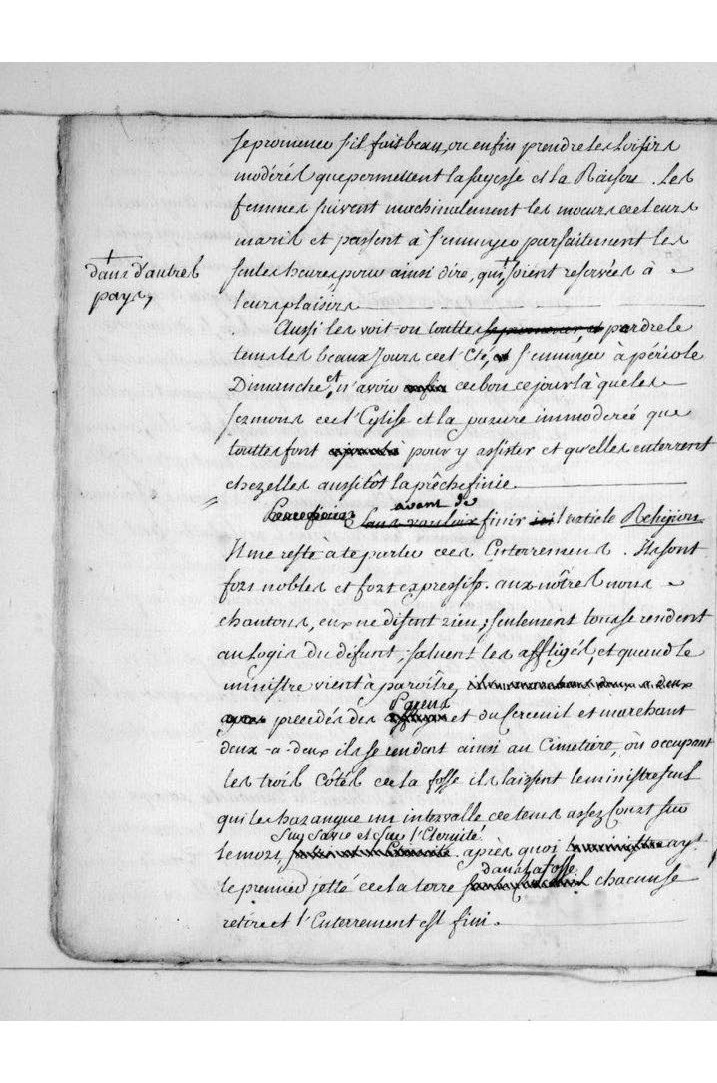 se promener s'il fait beau, ou enfin prendre les loisirs
modérés que permettent la sagesse et la Raison. Les
femmes suivent machinalement les mœurs de leurs
maris et passent à s'ennuyer parfaitement les
dans d'autres
pays,
seules heures pour ainsi dire, qui, soient reservées à
leurs plaisirs
Aussi les voit-on touttes se promener, et perdre le
tems les beaux Jours de l'Eté, et s'ennuyer à périr le
Dimanche, et n'avoir enfin de bon ce jour là que les
sermons de l'Eglise et la parure immoderée que
touttes font pour y assister et qu'elles enterrent
chez elles aussitôt la prêche finie
avant de
sans vouloir finir ici l'article Religion
Il me reste à te parler des Enterremens. Ils sont
fort nobles et fort expressifs. aux nôtres nous
chantons, eux ne disent rien; seulement tous se rendent
au logis du défunt, saluent les affligés, et quand le
ministre vient à paroître, ils
Parens
precédés des et du Cercueil et marchant
deux-a-deux ils se rendent ainsi au Cimetière, où occupant
les trois côtés de la fosse ils laissent le ministre seul
qui les harangue un intervalle de tems assez Court sur
sur sa vie et sur l'Eternité
le mort, après quoi le ministre ayt
dans la fosse
le premier jetté de la terre chacun se
retire et l'Enterrement est fini.